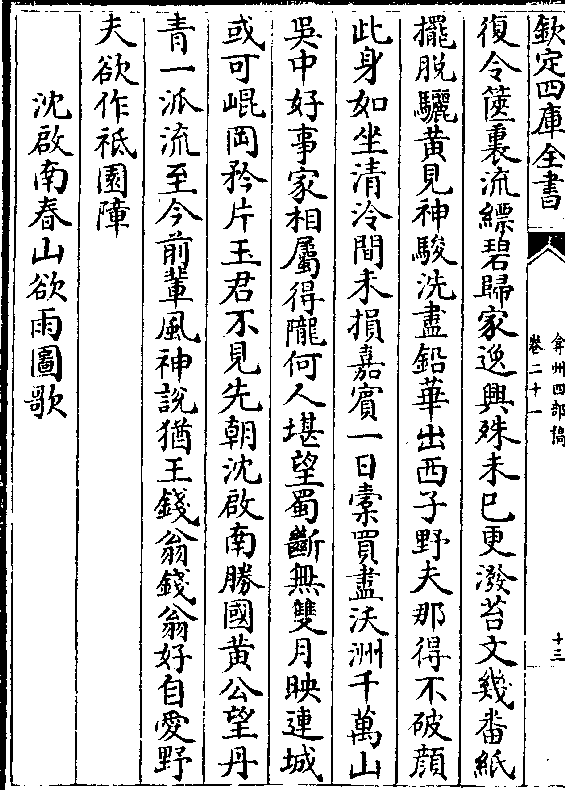 欽定四庫全書
弇州四部稿
卷二十一
十三
復令篋裏流縹碧歸家逸興殊未已更潑苔文幾番紙
擺脫驪黃見神駿洗盡鉛華出西子野夫那得不破顏
此身如坐清泠間未損嘉賓一日橐買盡沃洲千萬山
吳中好事家相屬得隴何人堪望蜀斷無雙月映連城
或可崐岡矜片玉君不見先朝沈啟南勝國黃公望丹
青一派流至今前輩風神說猶王錢翁錢翁好自愛野
夫欲作祗園障
沈啟南春山欲雨圖歌